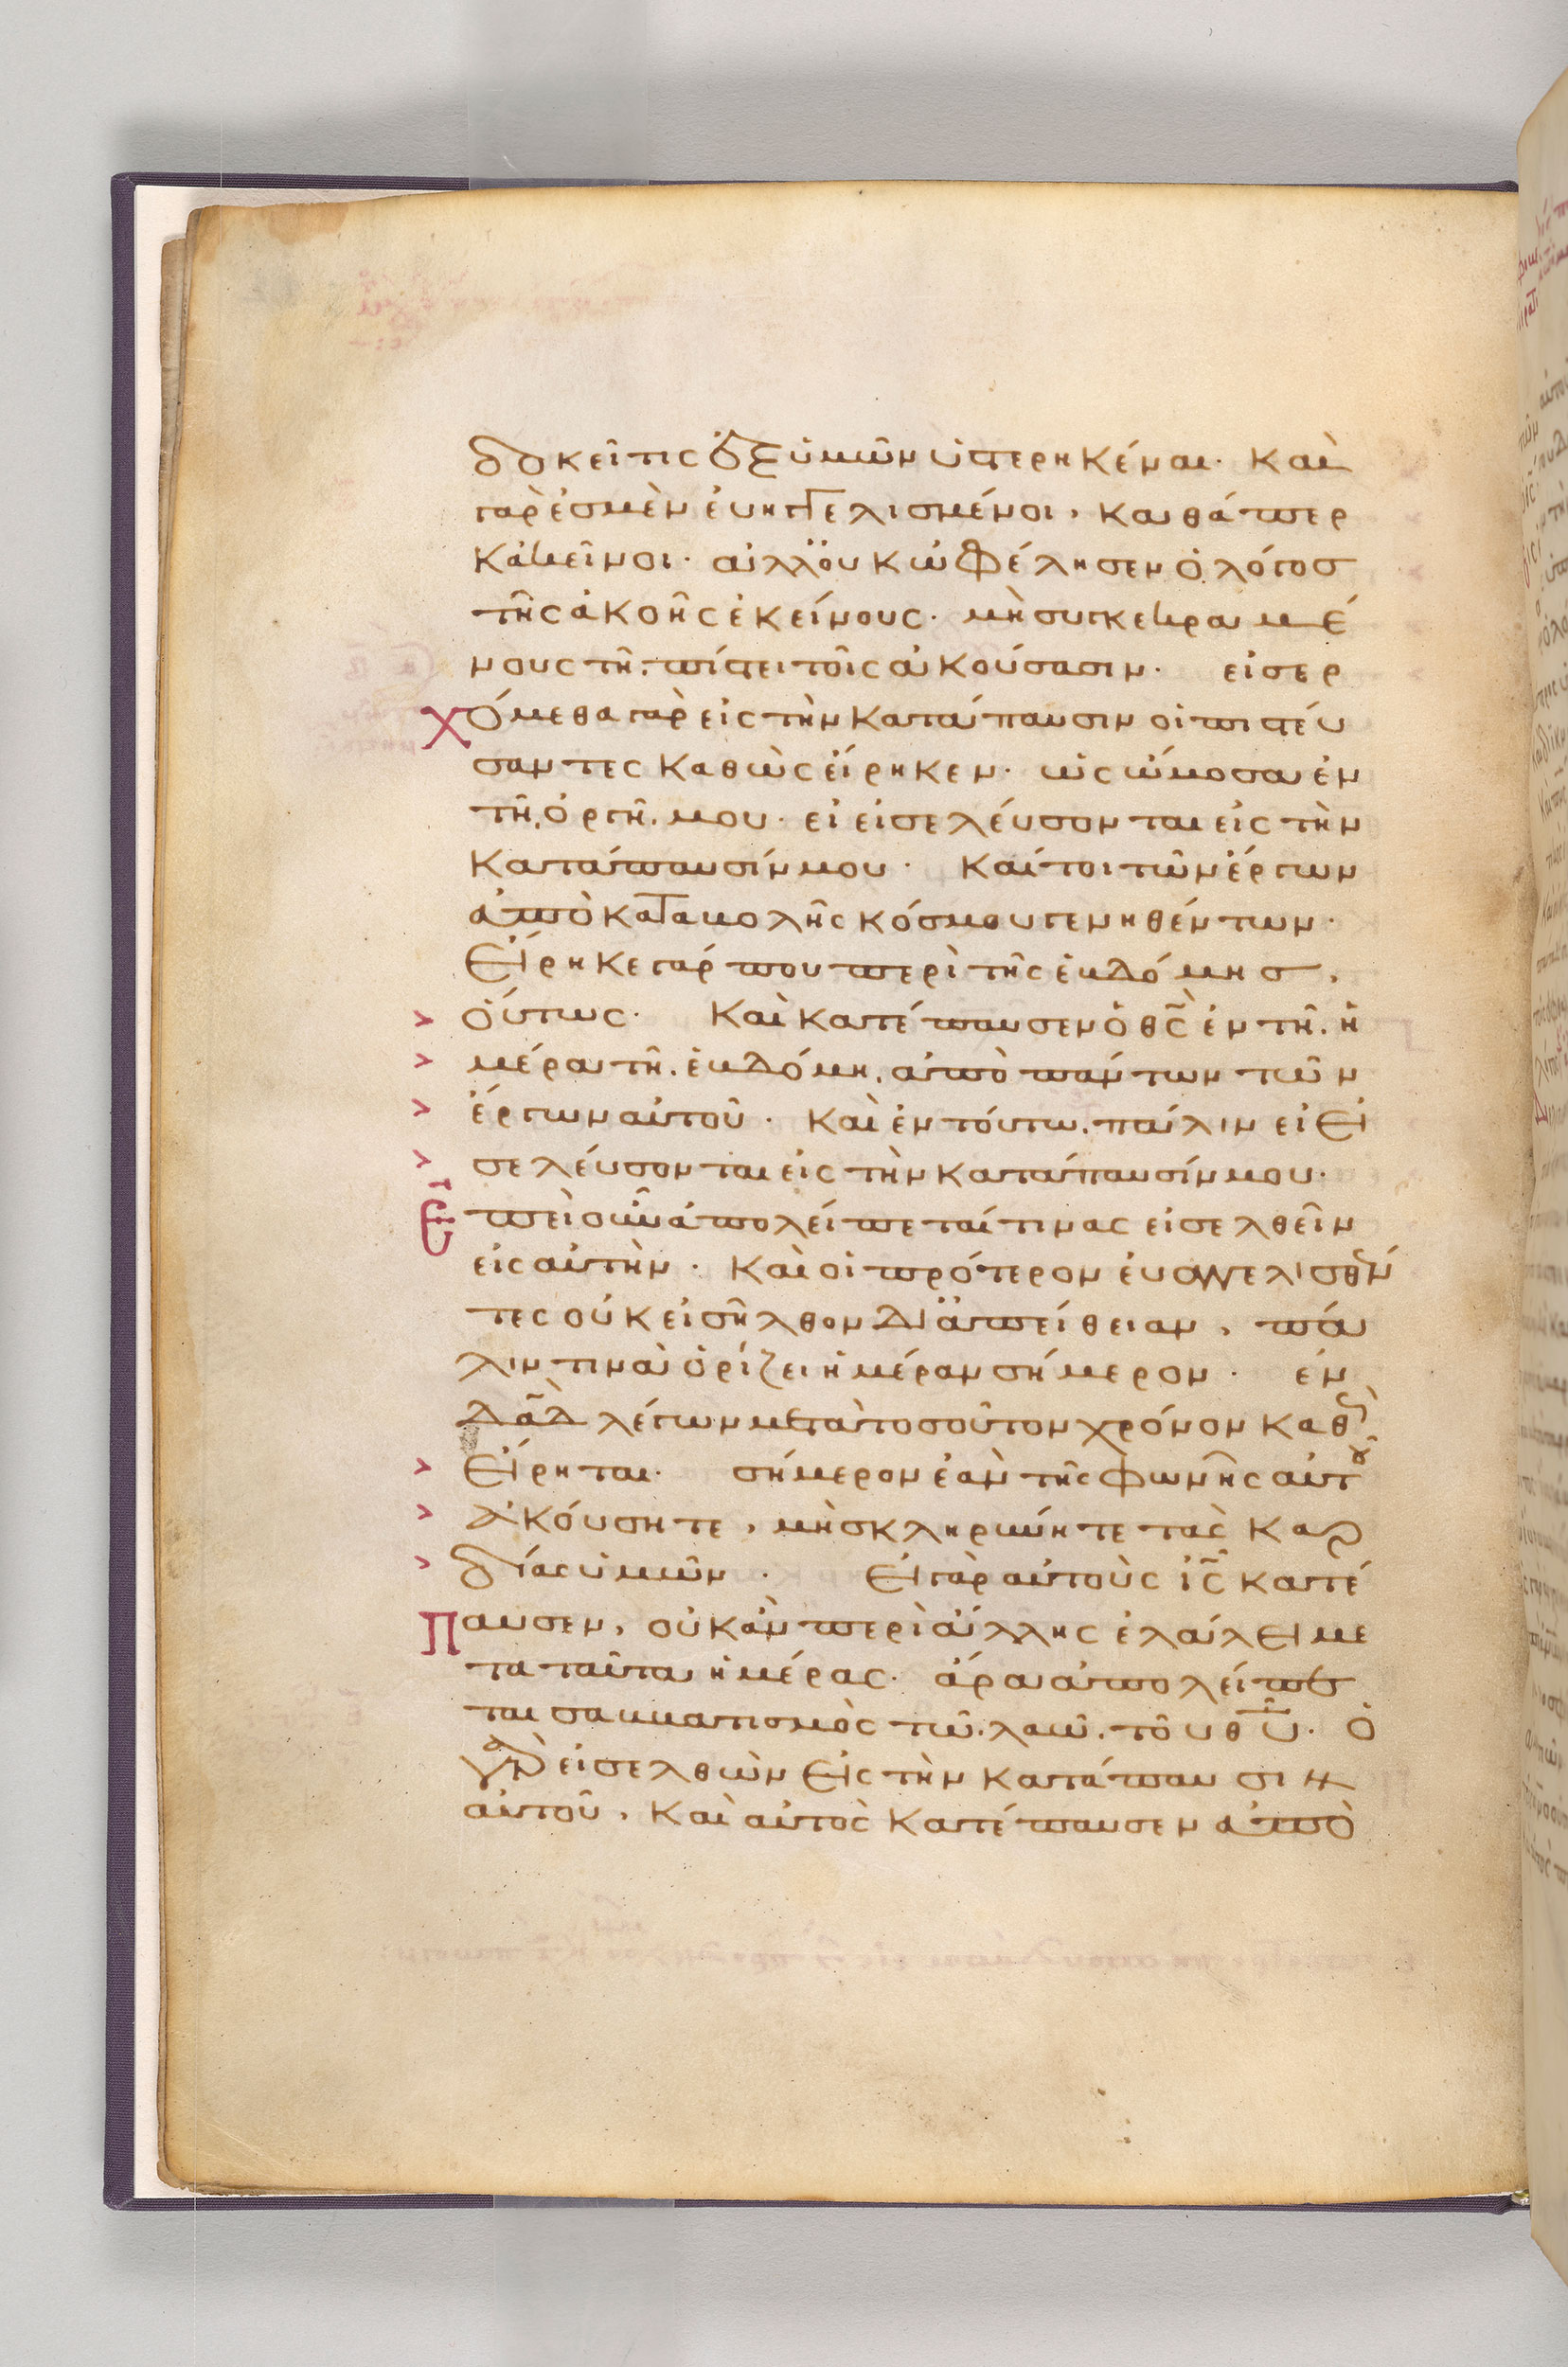 δοκεῖ τις ἐξ ὑμῶν ὑστερηκέναι· καὶ
γαρ ἐσμὲν ἐυηγγελισμένοι, καθάπερ
κἀκεῖνοι· ἀλλ' ουκ ὠφέλησεν ὁ λόγοσ
τῆς ἀκοῆς ἐκείνους· μὴ συγκεκραμέ
νους τῆ πίστει τοῖς ἀκούσασιν· εἰσερ
χόμεθα γαρ εἰς τὴν κατάπαυσιν οἱ πιστέυ
σαντες καθὼς εἴρηκεν· ὡς ὤμοσα ἐν
τῆ ὀργῆ μου· εἰ εἰσελέυσονται εἰς τὴν
κατάπαυσίν μου· καίτοι τῶν ἔργων
ἀπὸ καταβολῆς κόσμου γενηθέντων·
Εἴρηκε γάρ που περὶ τῆς ἑβδόμησ,
> ὅυτως· Καὶ κατέπαυσεν ὁ θς ἐν τῆ ἡ
> μέρα τῆ ἑβδόμη ἀπὸ πάντων τῶν
> ἔργων αὐτοῦ· Καὶ ἐν τόυτω πάλιν εἰ εἰ
> σελέυσονται εἰς τὴν κατάπαυσίν μου·
Ἐπεὶ οὖν ἀπολείπεταί τινας εἰσελθεῖν
εἰς αὐτὴν· Καὶ οἱ πρότερον ἐυαγγελισθέν
τες οὐκ εἰσῆλθον δι' ἀπείθειαν, πά
λιν τινὰ ὁρίζει ἡμέραν σήμερον· ἐν
δᾱδ λέγων μετὰ τοσοῦτον χρόνον καθὼς
> Εἴρηται· σήμερον ἐὰν τῆς φωνῆς αὐτοῦ
> Ἀκόυσητε, μὴ σκληρύνητε τὰς καρ
> δίας ὑμῶν· Εἰ γὰρ αὐτοὺς ις κατέ
Παυσεν, οὐκ ἂν περὶ ἄλλης ἐλάλει με
τα ταῦτα ἡμέρας· ἄρα ἀπολείπε
ται σαββατισμὸς τῶ λαῶ τοῦ θυ· Ὁ
γὰρ εἰσελθὼν εἰς τὴν κατάπαυσιν
αὐτοῦ, Καὶ αὐτὸς κατέπαυσεν ἀπὸ